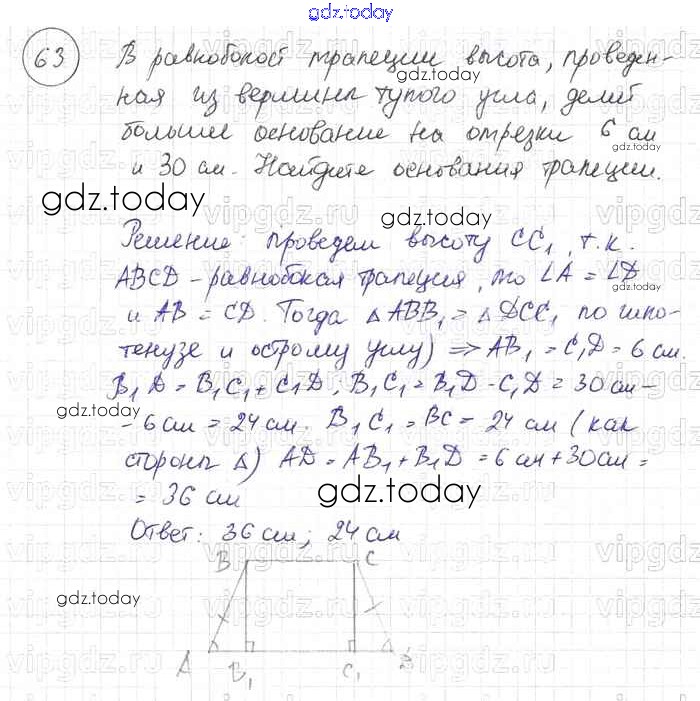 gdz.today
63 В равнобокой трапеции высота, проведен-
gdz.today
ная из вершины тупого угла, делит
большее основание на отрезки 6 см
и 30 см. Найдите основания трапеции.
gdz.today gdz.today
Решение: проведем высоту CC₁, т.к.
ABCD – равнобокая трапеция, то ∠A = ∠D
gdz.today
и AB = CD. Тогда △ABB₁ = △DCC₁ по гипо-
тенузе и острому углу) ⇒ AB₁ = C₁D = 6 см.
B₁D = B₁C₁ + C₁D, B₁C₁ = B₁D - C₁D = 30 см -
gdz.today
- 6 см = 24 см. B₁C₁ = BC = 24 см (как
стороны △) AD = AB₁ + B₁D = 6 см + 30 см =
= 36 см
gdz.today
Ответ: 36 см; 24 см
gdz.today
B C
gdz.today
A B₁ C₁
gdz.today